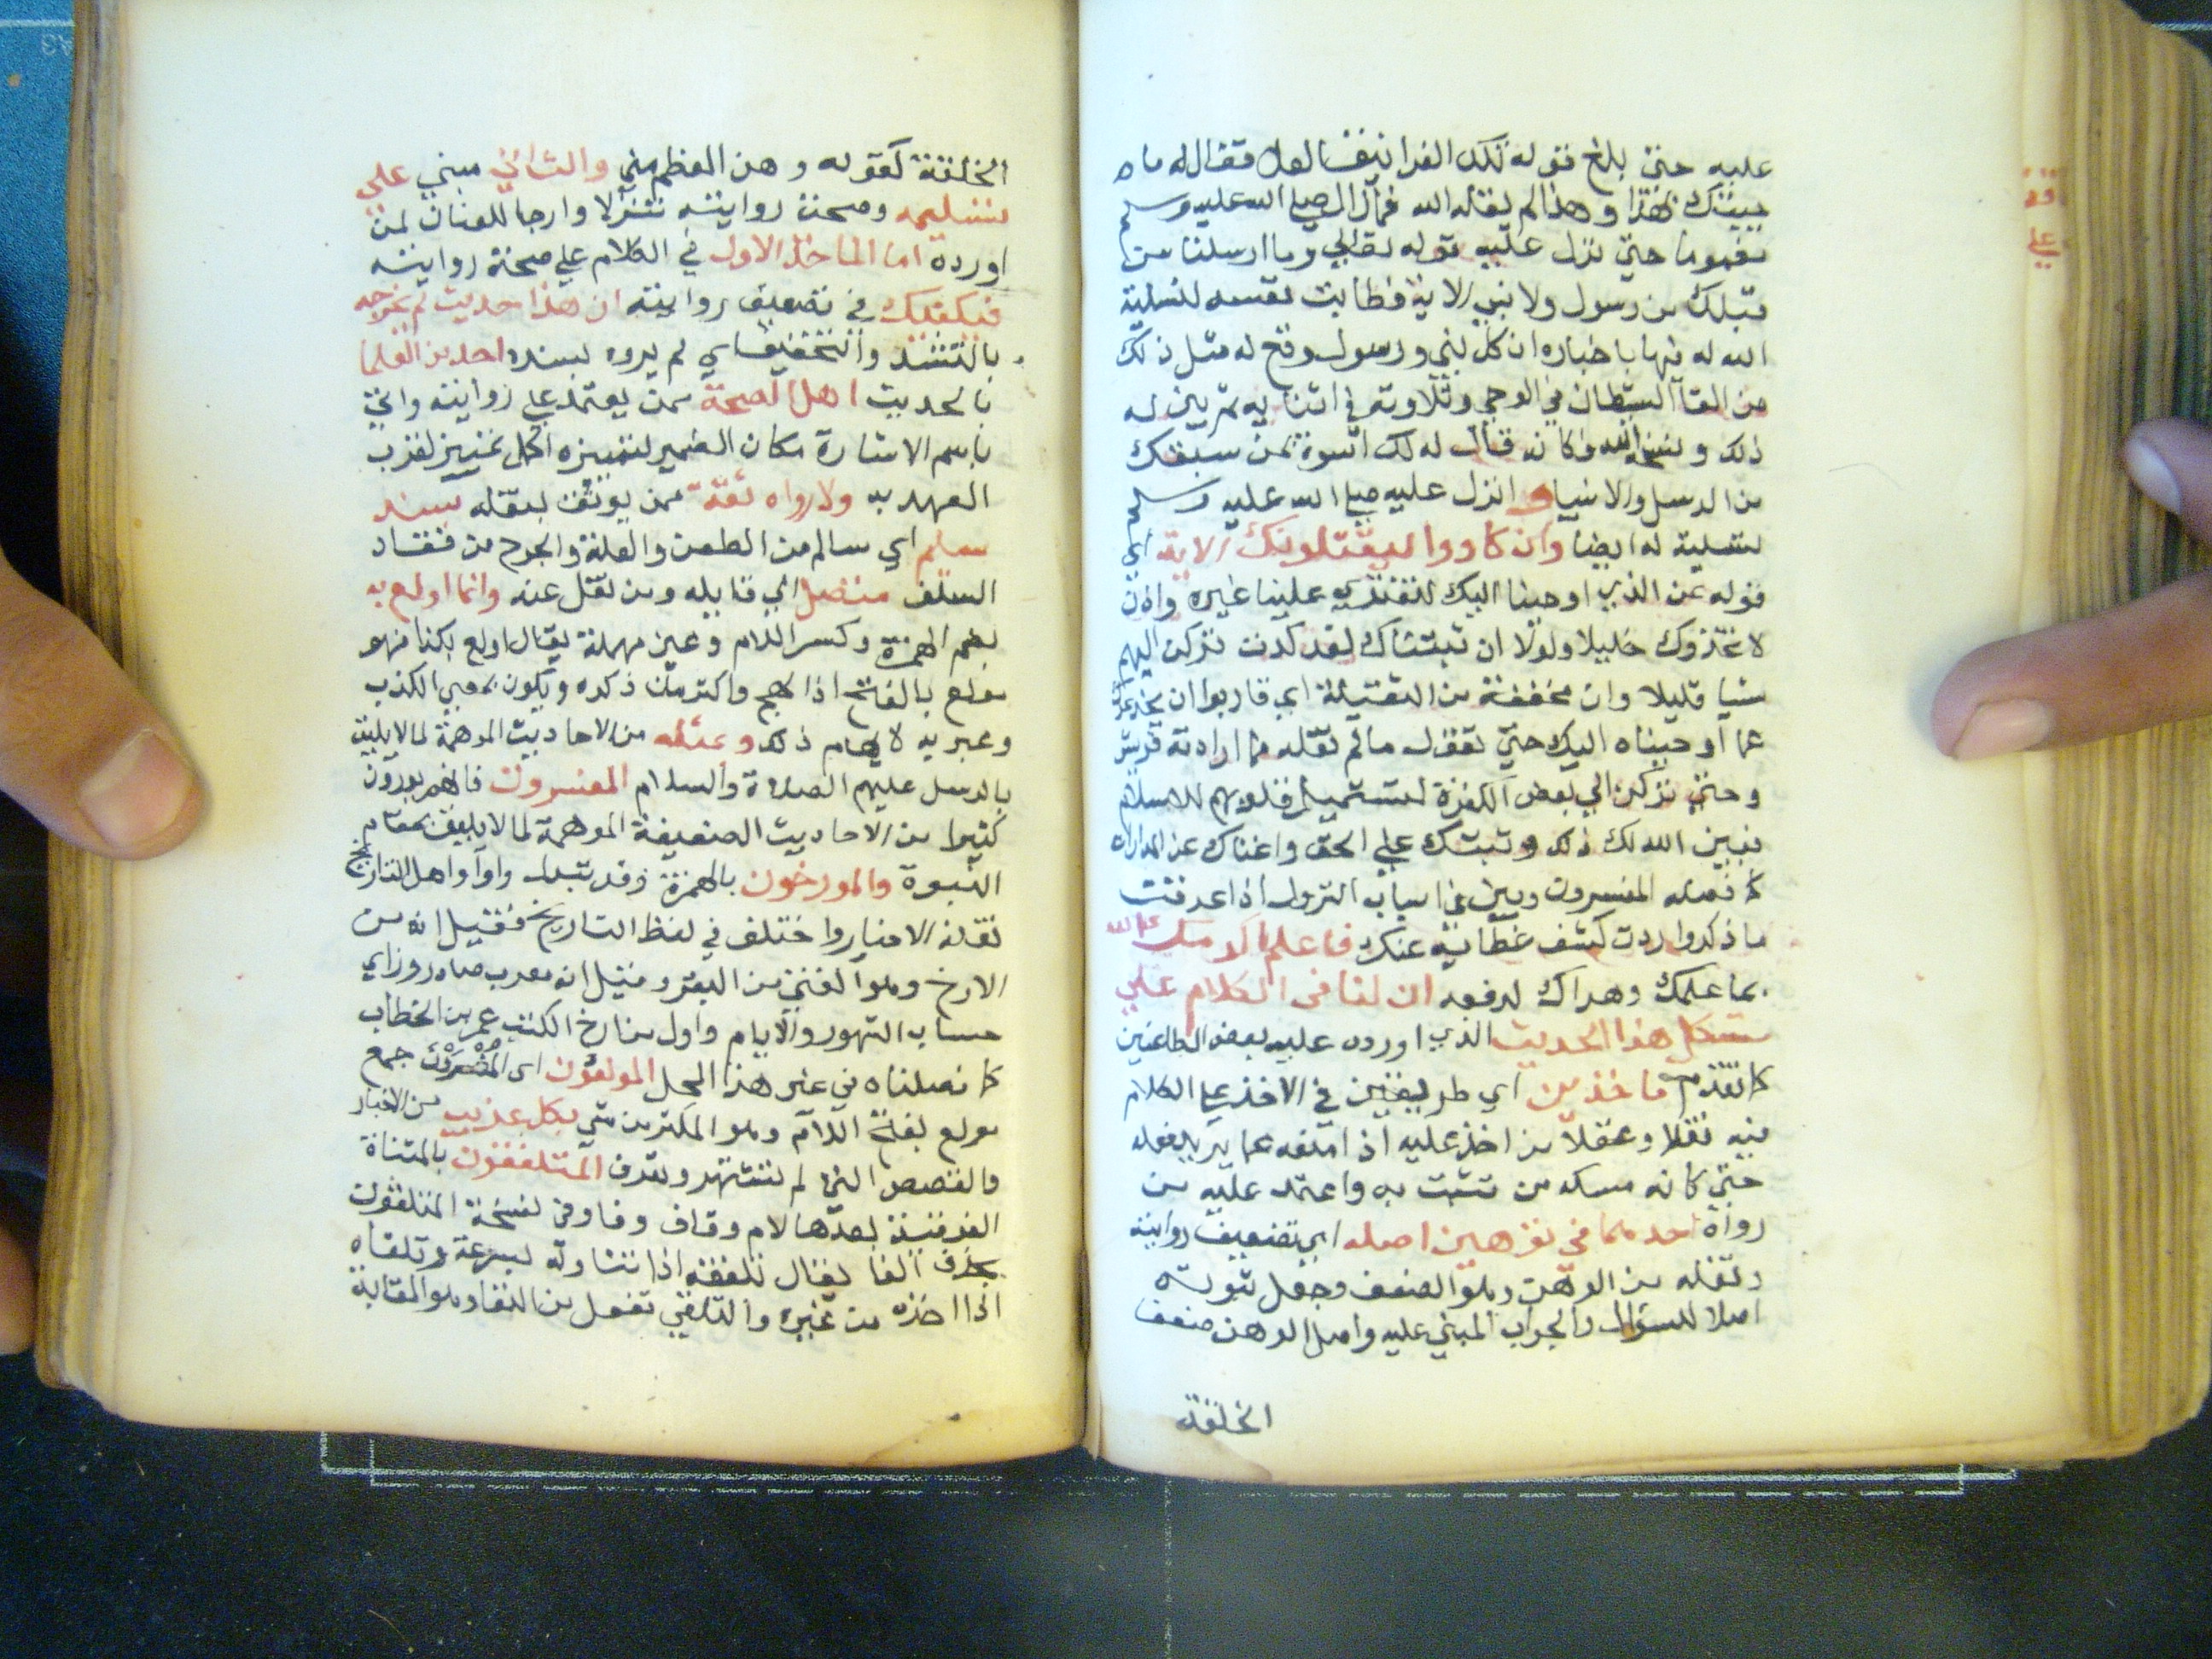 عليه حتى بلغ قوله تلك الغرانيق العلا فقال له ما
جيتك بهذا وهذا لم يقله الله فما زال صلى الله عليه وسلم
مغموما حتى نزل عليه قوله تعالى وما ارسلنا من
قبلك من رسول ولا نبي الاية فطابت نفسه لتسلية
الله له فيها باخباره ان كل نبي ورسول وقع له مثل ذلك
من القآ الشيطان في الوحي وتلاوته في اثنايه ثم يبين له
ذلك وينسخه الله وكانه قال له لك اسوة بمن سبقك
من الرسل والانبيا وانزل عليه صلى الله عليه وسلم
لتسلية له ايضا وان كادوا ليفتنونك الاية اي
قوله عن الذي اوحينا اليك لتفتري علينا غيره واذن
لاتخذوك خليلا ولولا ان ثبتناك لقد كدت تركن اليهم
شيا قليلا وان مخففة من الثقيلة اي قاربوا ان يخدعوك
عما اوحيناه اليك حتى تقول ما لم نقله مما ارادته قريش
وحتى تركن الي بعض الكفرة لتستميل قلوبهم للاسلام
فبين الله لك ذلك وثبتك على الحق واغناك عن المداراة
كما فصله المفسرون وبين في اسباب النزول اذا عرفت
ما ذكر واردت كشف غطائه عنك فاعلم اكرمك الله
بما علمك وهداك لدفعه ان لنا في الكلام على
مشكل هذا الحديث الذي اورده عليه بعض الطاعنين
كما تقدم ماخذين اي طريقين في الاخذ على الكلام
فيه نقلا وعقلا من اخذ عليه اذا منعه عما يريد فعله
حتى كانه مسكه من تشبث به واعتمد عليه من
رواه احدهما في توهين اصله اي تضعيف روايته
ونقله من الوهن وهو الضعف وجعل ثبوته
اصلا للسؤال والجواب المبني عليه واصل الوهن ضعف
الخلقة
الخلقة كقوله وهن العظم مني والثاني مبني على
تسليمه وصحة روايته تنزلا وارخا للعنان لمن
اورده اما الماخذ الاول في الكلام على صحة روايته
فيكفيك في تضعيف روايته ان هذا حديث لم يخرجه
بالتشديد والتخفيف اي لم يروه بسنده احد من العلما
بالحديث اهل الصحة ممن يعتمد على روايته واتى
باسم الاشارة مكان الضمير لتمييزه اكمل تمييز لقرب
العهد به ولا رواه ثقة ممن يوثق بنقله بسند
سليم اي سالم من الطعن والعلة والجرح من نقاد
السلف متصل الي قايله ومن نقل عنه وانما اولع به
بضم الهمزة وكسر اللام وعين مهملة يقال اولع بكذا فهو
مولع بالفتح اذا لهج واكثر من ذكره ويكون بمعني الكذب
وعبر به لايهام ذلك وبمثله من الاحاديث الموهمة لما لا يليق
بالرسل عليهم الصلاة والسلام المفسرون فانهم يوردون
كثيرا من الاحاديث الضعيفة الموهمة لما لا يليق بمقام
النبوة والمورخون بالهمزة وقد تبدل واوا واهل التاريخ
نقلة الاخبار واختلف في لفظ التاريخ فقيل انه من
الارخ وهو الفتي من البقر وقيل انه معرب ماه روز اي
حساب الشهور والايام واول من ارخ الكتب عمر بن الخطاب
كما فصلناه في غير هذا المحل المولعون اي المغرون جمع
مولع بفتح اللام وهو المكثر من شي بكل غريب من الاخبار
والقصص التي لم تشتهر وتعرف المتلقفون بالمثناة
الفوقية بعدها لام وقاف وفا وفي نسخة المتلقون
بحذف الفا يقال تلقفه اذا تناوله بسرعة وتلقاه
اذا اخذه من غيره والتلقي تفعل من اللقا وهو المقابلة